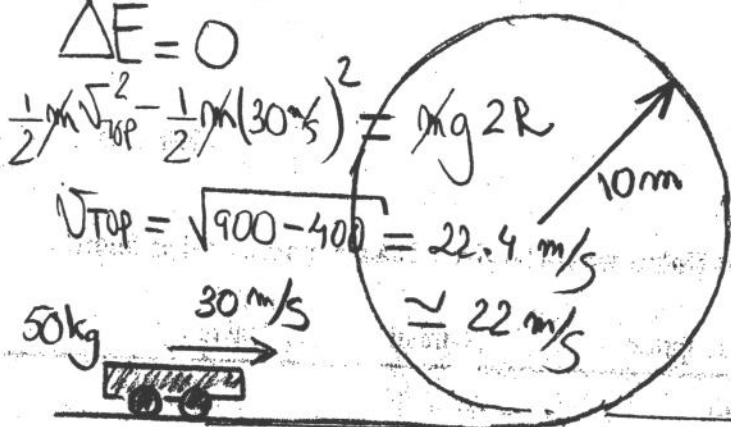 ΔE = 0
½ m v_TOP² - ½ m (30 m/s)² = m g 2R
v_TOP = √(900-400) = 22.4 m/s
≃ 22 m/s
10m
30 m/s
50kg